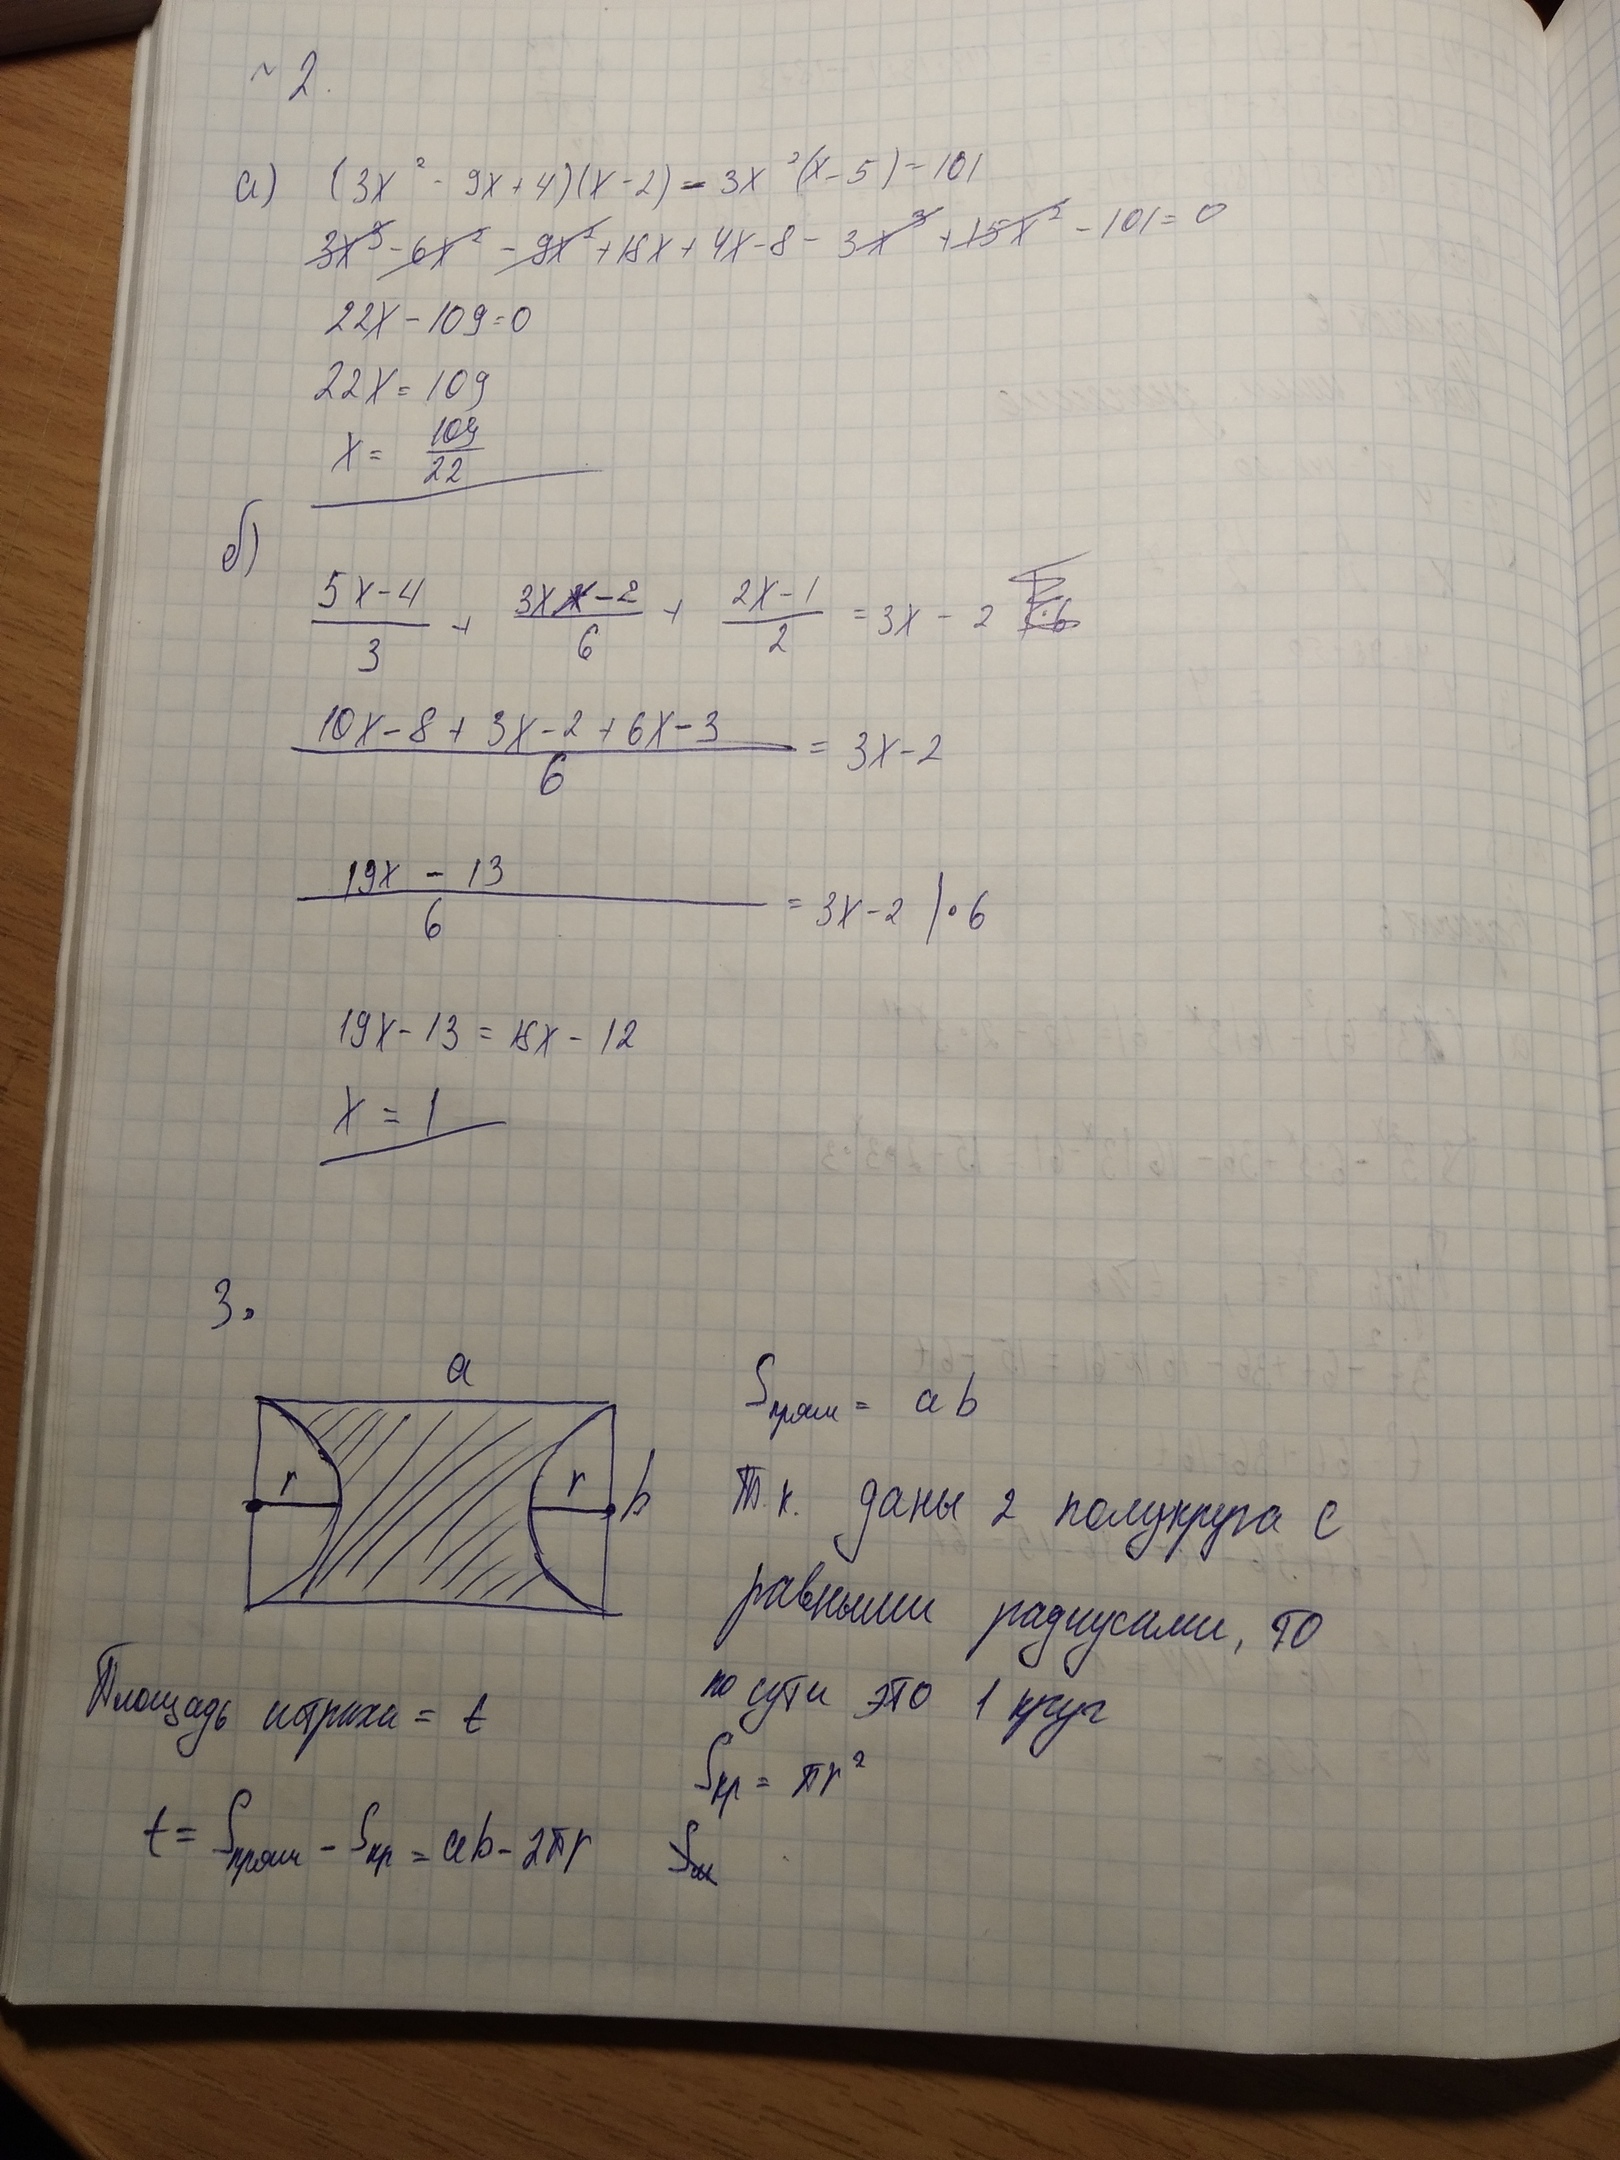 ~ 2.
а) (3x² - 9x + 4)(x - 2) = 3x²(x - 5) - 101
3x³ - 6x² - 9x² + 18x + 4x - 8 - 3x³ + 15x² - 101 = 0
22x - 109 = 0
22x = 109
x = 109/22
б)
(5x - 4)/3 + (3x - 2)/6 + (2x - 1)/2 = 3x - 2
(10x - 8 + 3x - 2 + 6x - 3)/6 = 3x - 2
(19x - 13)/6 = 3x - 2 | · 6
19x - 13 = 18x - 12
x = 1
3.
a
r r b
Sпрям = ab
Т.к. даны 2 полукруга с
равными радиусами, то
по сути это 1 круг
Sкр = πr²
Площадь штриха = t
t = Sпрям - Sкр = ab - 2πr